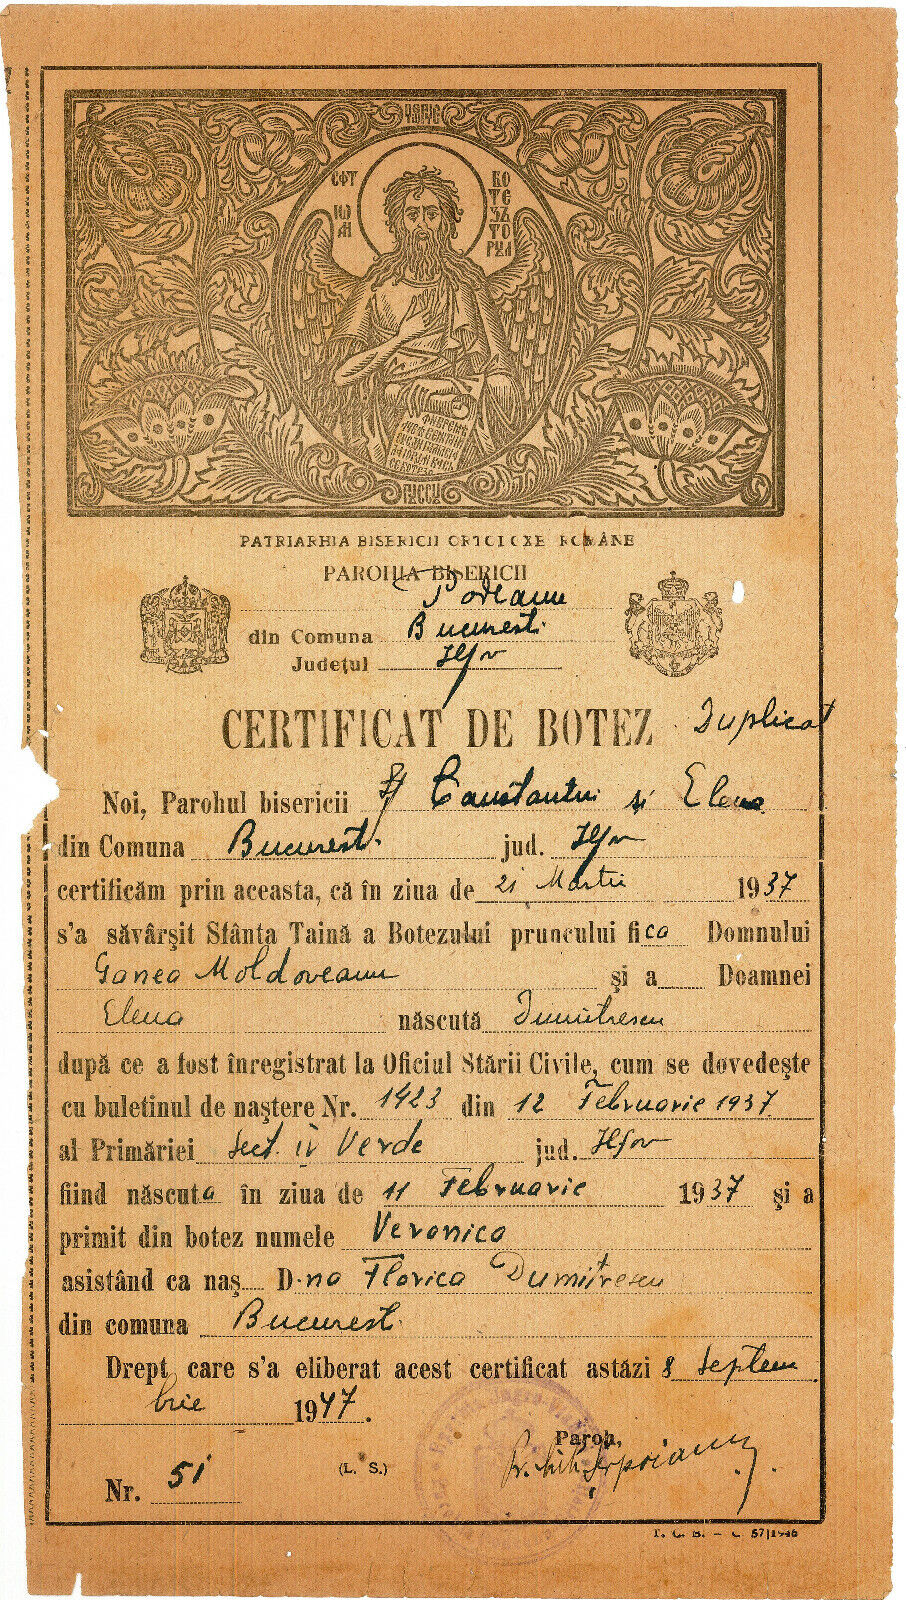 СФТ
ІѠАН
БОТЕЗЪТОРУЛ
PATRIARHIA BISERICII ORTODOXE ROMÂNE
PAROHIA BISERICII
Podeanu
din Comuna Bucuresti
Județul Ilfov
CERTIFICAT DE BOTEZ Duplicat
Noi, Parohul bisericii Sf Constantin si Elena
din Comuna Bucuresti jud. Ilfov
certificăm prin aceasta, că în ziua de 21 Martie 1937
s'a săvârşit Sfânta Taină a Botezului pruncului fica Domnului
Ganea Moldoveanu şi a Doamnei
Elena născută Dumitrescu
după ce a fost înregistrat la Oficiul Stării Civile, cum se dovedeşte
cu buletinul de naştere Nr. 1423 din 12 Februarie 1937
al Primăriei Sect. IV Verde jud. Ilfov
fiind născuta în ziua de 11 Februarie 1937 şi a
primit din botez numele Veronica
asistând ca naş D-na Florica Dumitrescu
din comuna Bucuresti
Drept care s'a eliberat acest certificat astăzi 8 Septem
brie 1947.
Paroh,
Nr. 51 (L. S.) Pr.
T. C. B. – C. 57/1946